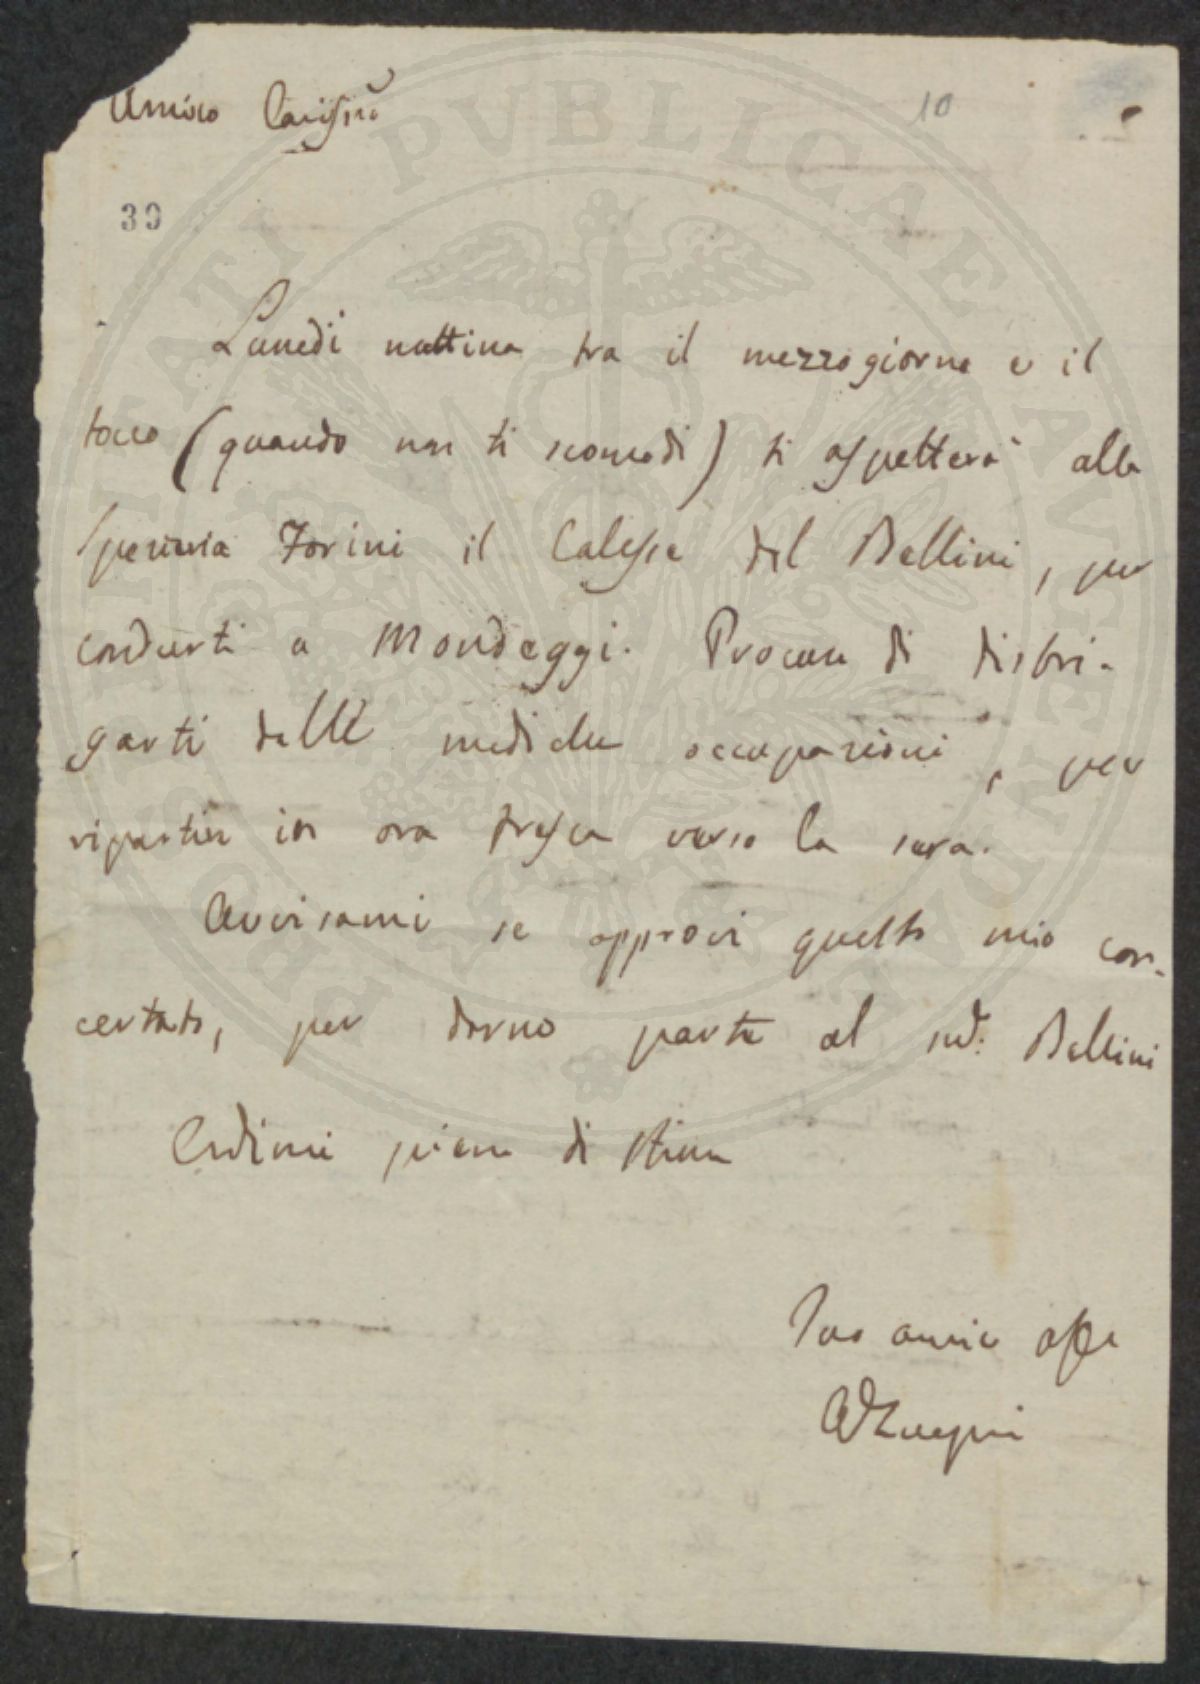 Amico Cariss.mo
10
39
Lunedi mattina tra il mezzogiorno e il
tocco (quando non ti scomodi) ti aspetterà alla
Spezieria Forini il Calesse del Bellini, per
condurti a Mondeggi. Procura di disbri-
garti dalle mediche occupazioni, per
ripartire in ora fresca verso la sera.
Avvisami se approvi questo mio con-
certato, per darne parte al sud: Bellini
Credimi pieno di stima
Tuo amico affe
PVBLICAE